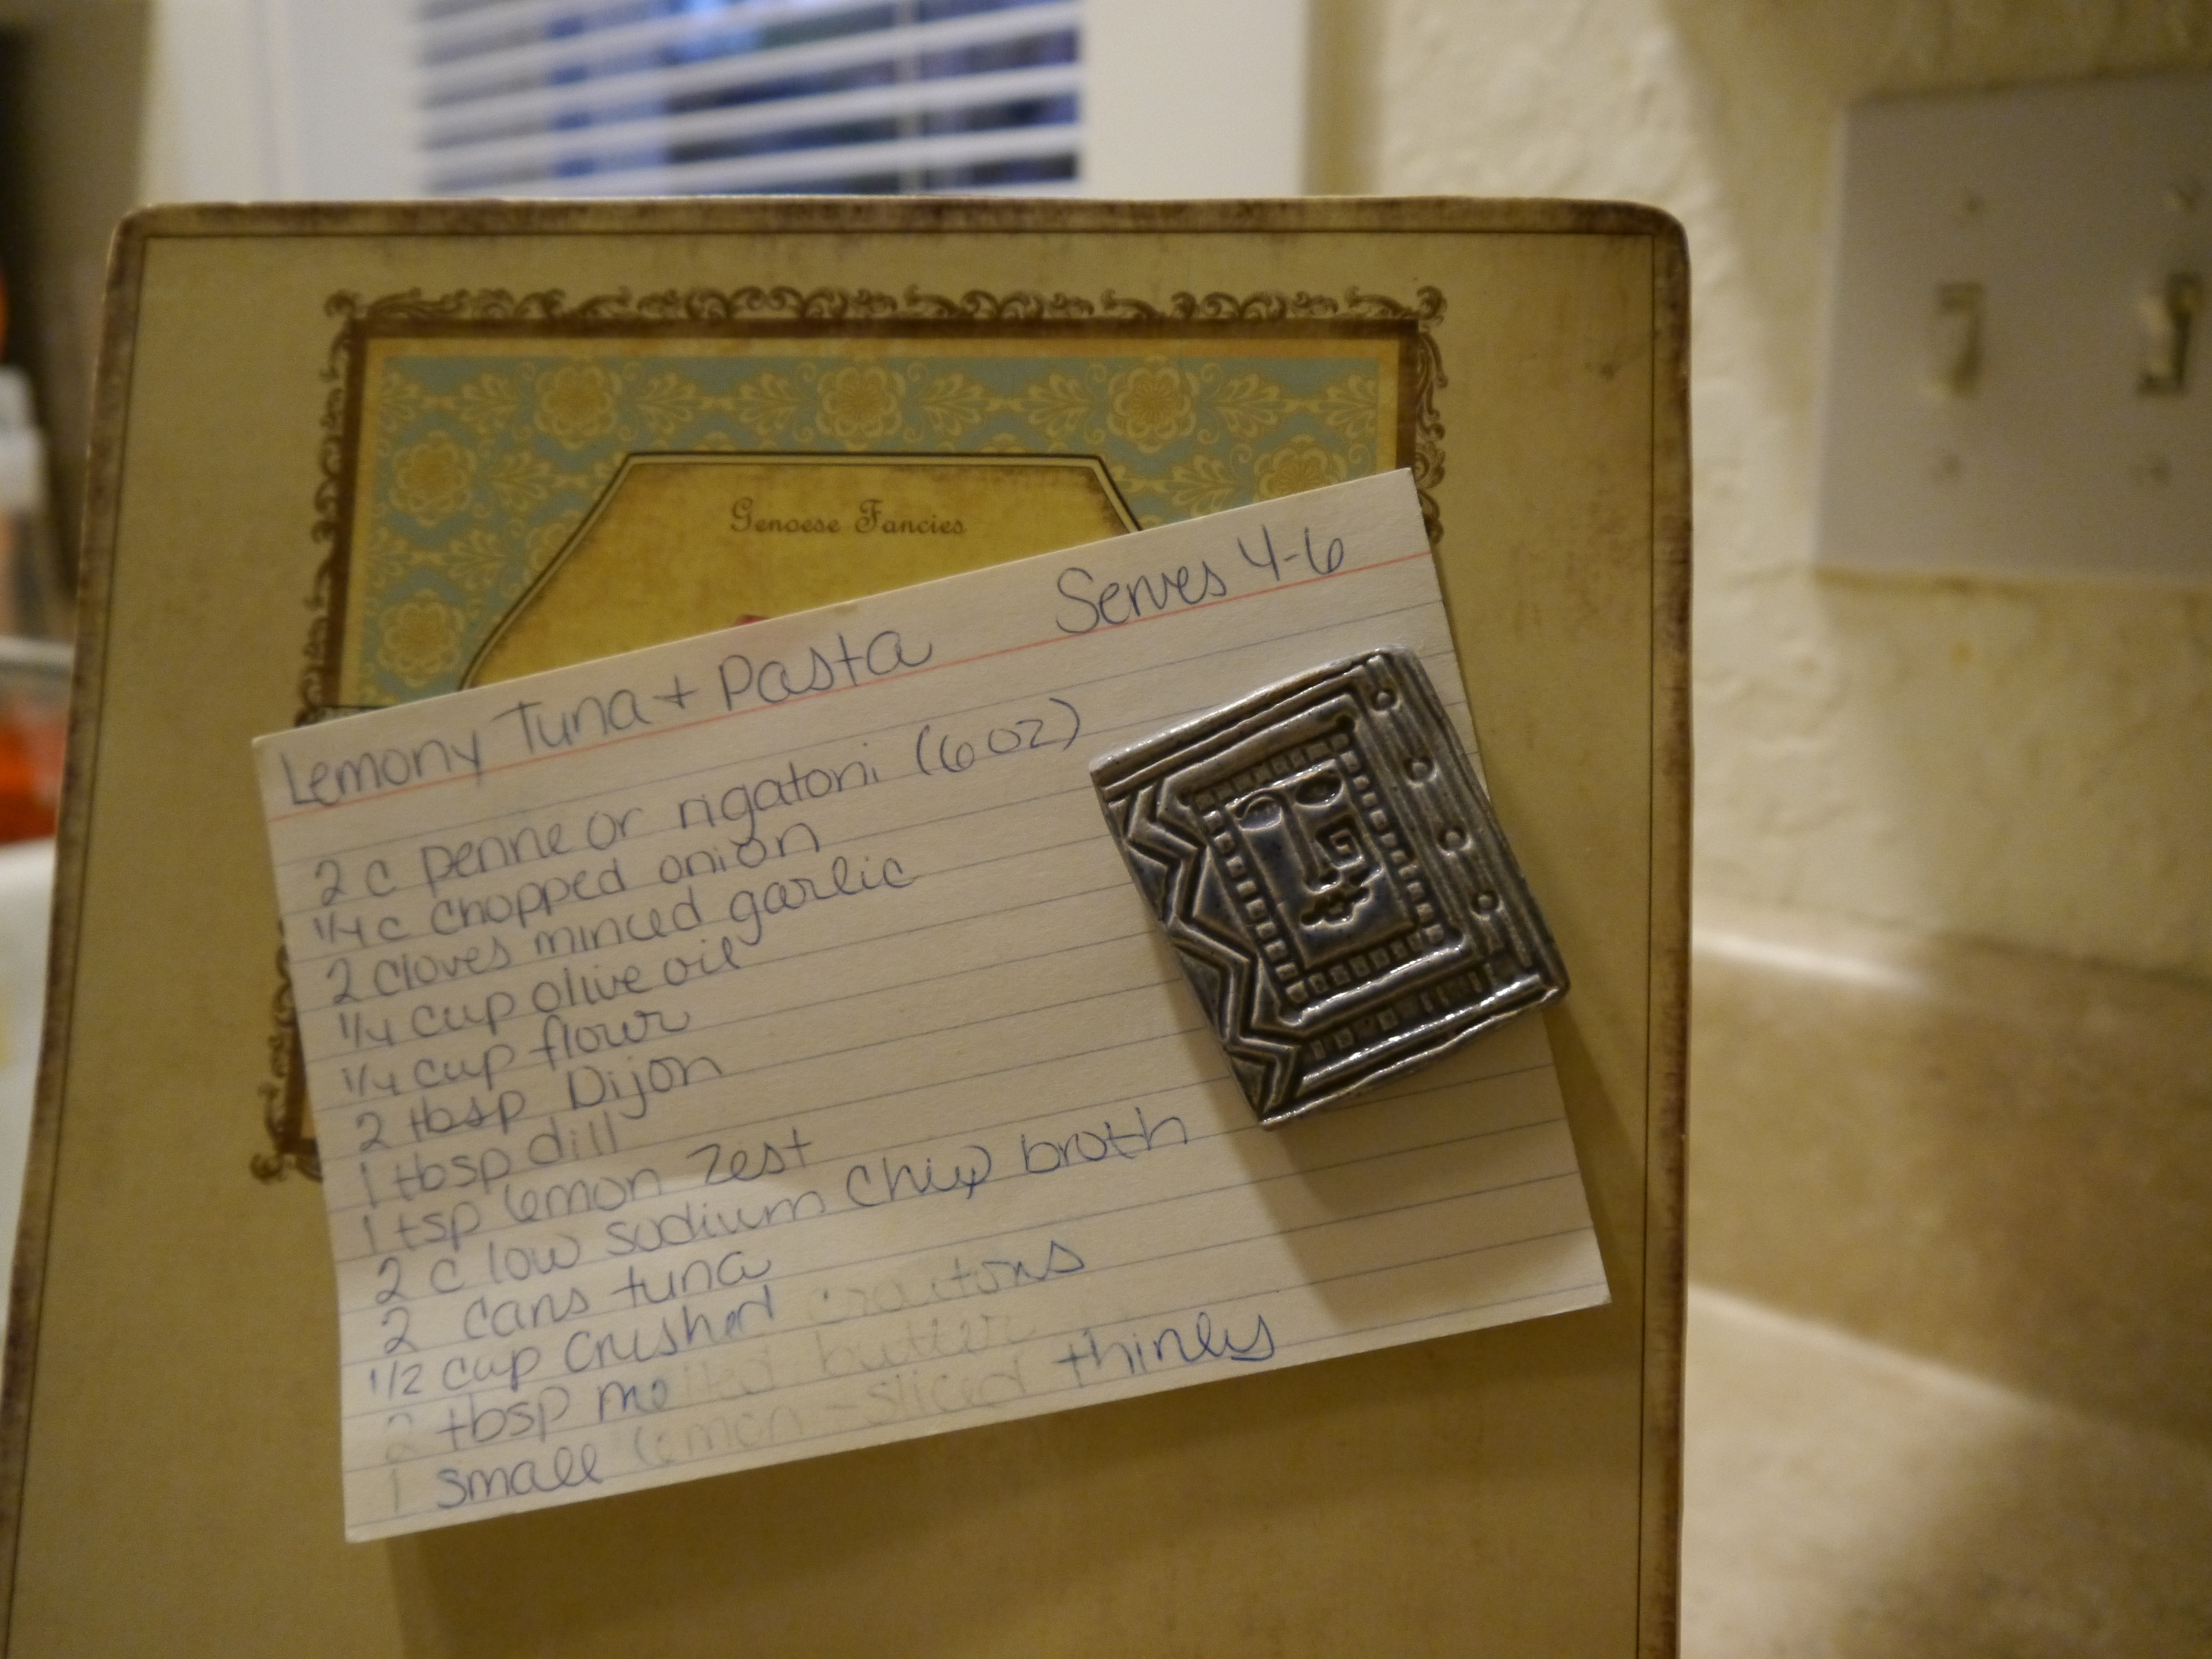 Genoese Fancies
Lemony Tuna + Pasta Serves 4-6
2 c penne or rigatoni (6 oz)
1/4 c chopped onion
2 cloves minced garlic
1/4 cup olive oil
1/4 cup flour
2 tbsp Dijon
1 tbsp dill
1 tsp lemon zest
2 c low sodium chix broth
2 cans tuna
1/2 cup crushed croutons
2 tbsp melted butter
1 small lemon - sliced thinly